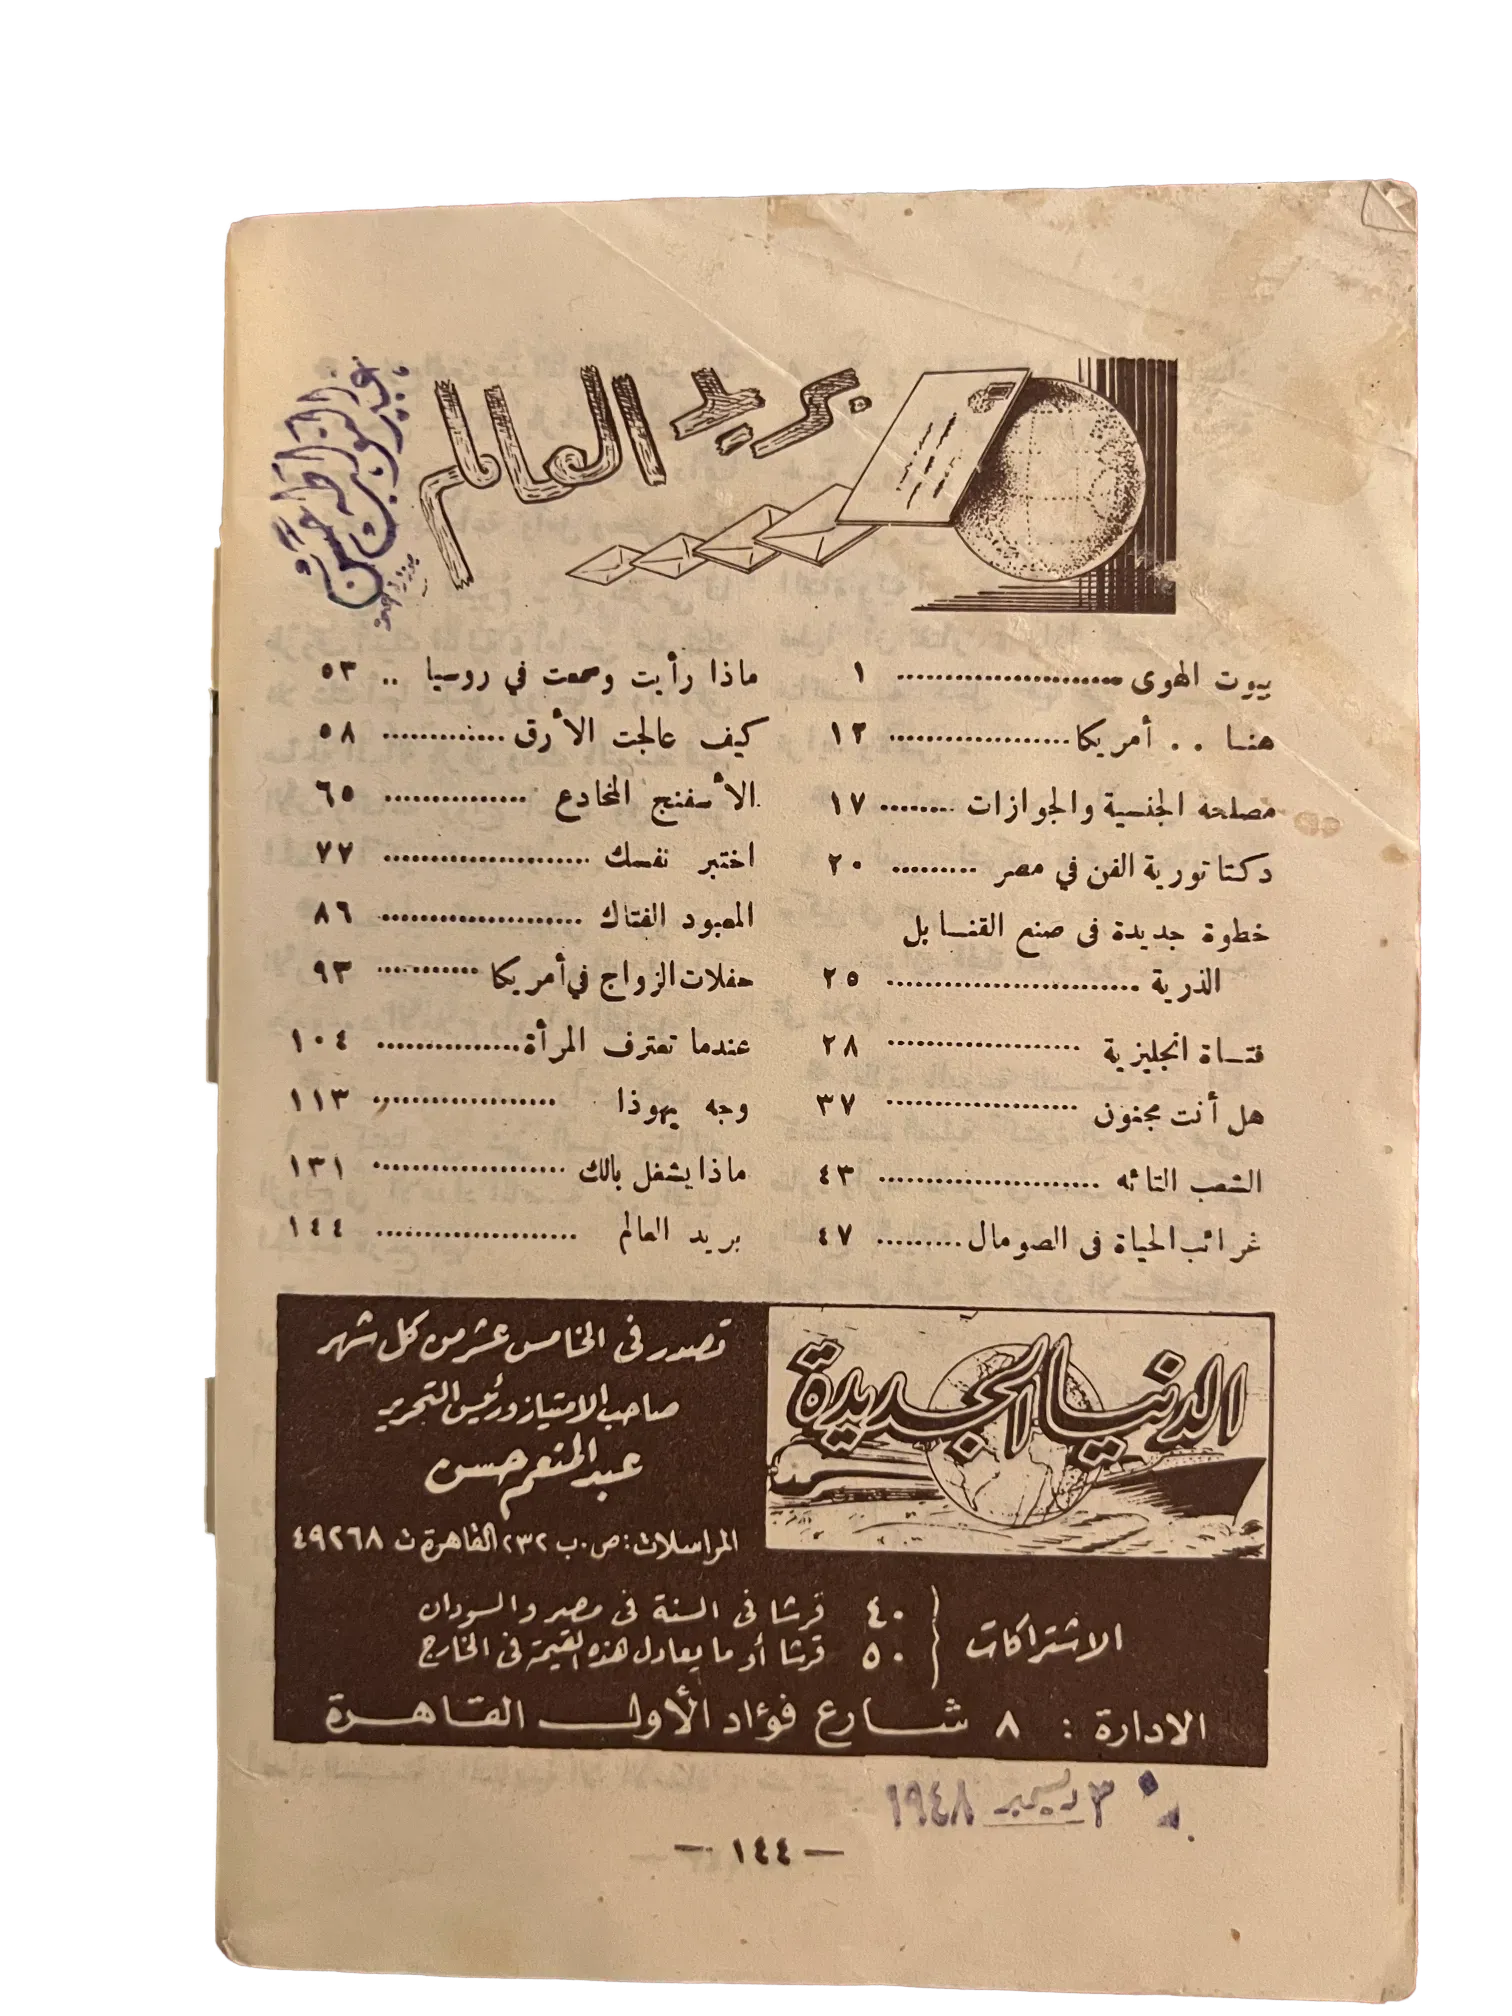 بريد العالم
بيوت الهوى ........................ ١
هنا .. أمريكا ................... ١٢
مصلحة الجنسية والجوازات ........ ١٧
دكتاتورية الفن في مصر ......... ٢٠
خطوة جديدة فى صنع القنابل
الذرية .......................... ٢٥
فتاة انجليزية .................... ٢٨
هل أنت مجنون .................... ٣٧
الشعب التائه ....................... ٤٣
غرائب الحياة فى الصومال ......... ٤٧
ماذا رأيت وسمعت في روسيا .. ٥٣
كيف عالجت الأرق ............. ٥٨
الأسفنج المخادع ............... ٦٥
اختبر نفسك ...................... ٧٧
المعبود الفتاك ..................... ٨٦
حفلات الزواج في أمريكا ........... ٩٣
عندما تعترف المرأة ............... ١٠٤
وجه يهوذا ................... ١١٣
ماذا يشغل بالك .................... ١٣١
بريد العالم ..................... ١٤٤
الدنيا الجديدة
تصدر فى الخامس عشر من كل شهر
صاحب الامتياز ورئيس التحرير
عبد المنعم حسن
المراسلات : ص . ب ٢٣٢ القاهرة ت ٤٩٢٦٨
الاشتراكات
٤٠ قرشا فى السنة فى مصر والسودان
٥٠ قرشا أو ما يعادل هذه القيمة فى الخارج
الادارة : ٨ شارع فؤاد الأول القاهرة
٣ ديسمبر ١٩٤٨
— ١٤٤ —